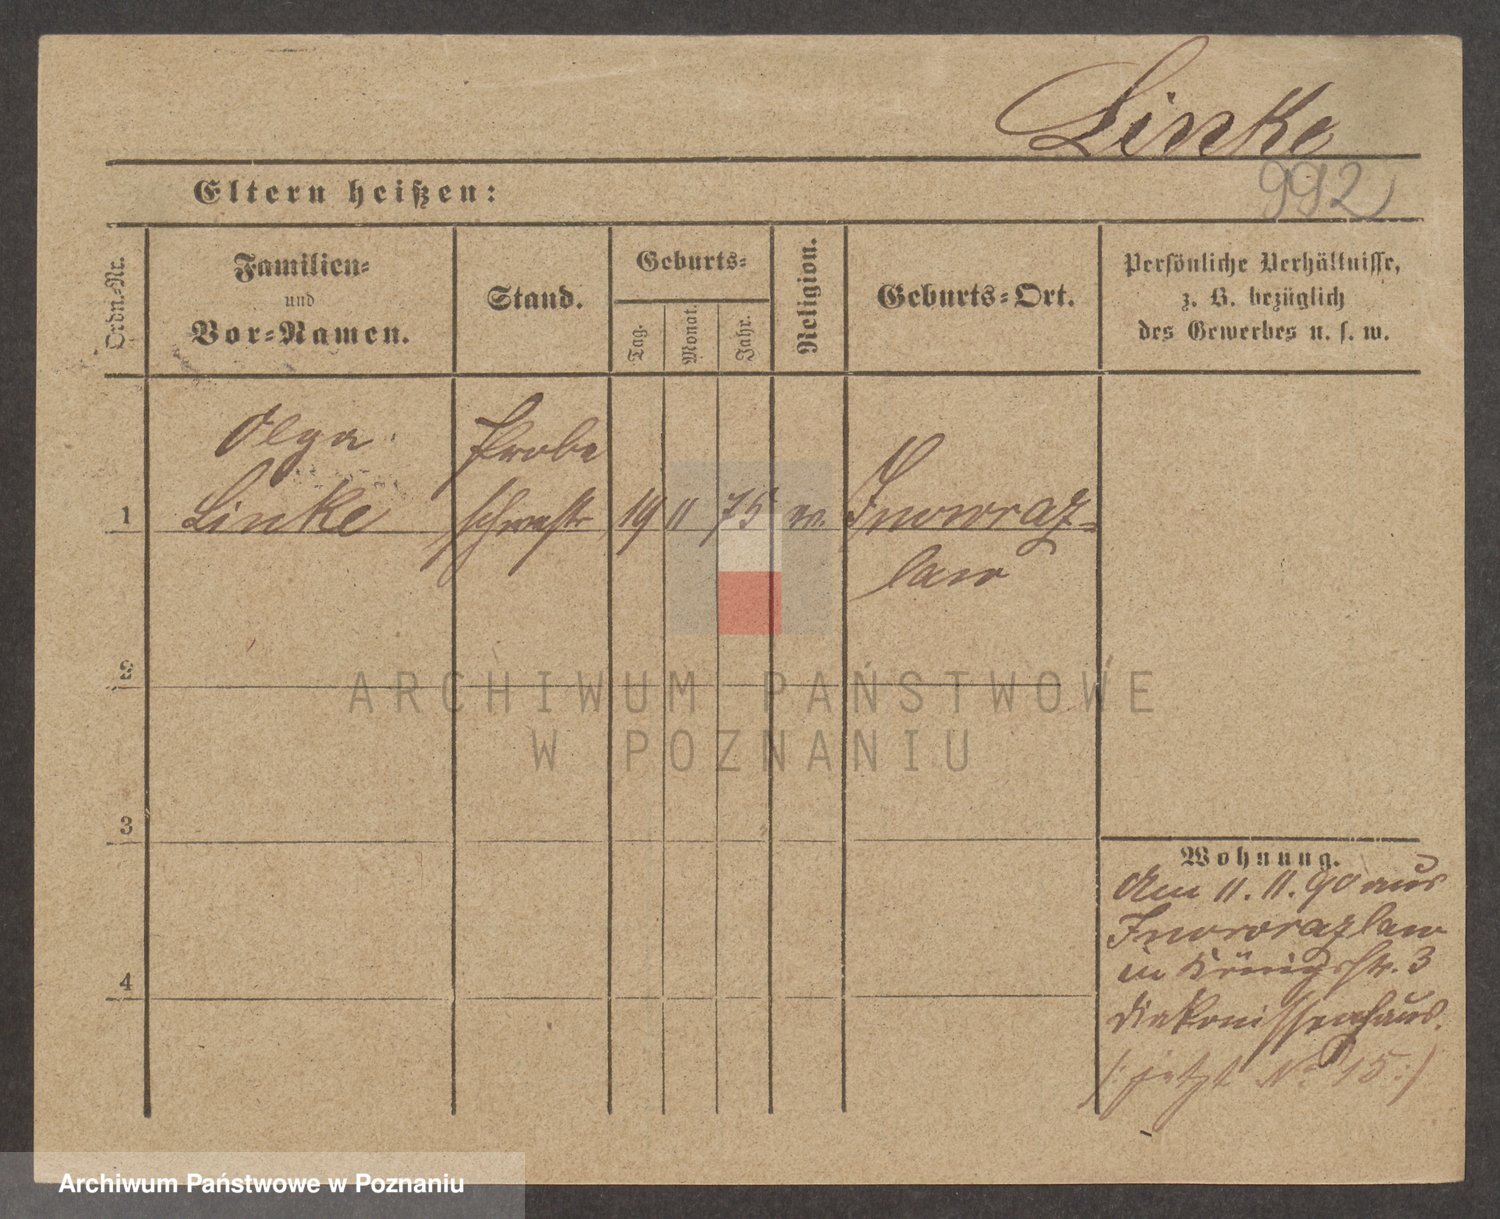 Linke
992
Eltern heißen:
Ordn.-Nr.
Familien-
und
Vor-Namen.
Stand.
Geburts-
Tag.
Monat.
Jahr.
Religion.
Geburts-Ort.
Persönliche Verhältnisse,
z. B. bezüglich
des Gewerbes u. s. w.
Olga
Linke
Probe
schwestr
1
19
11
75
ev.
Inowraz-
law
2
3
4
ARCHIWUM PAŃSTWOWE
W POZNANIU
Wohnung.
Am 11. 11. 90 aus
Inowrazlaw
in Königsstr. 3
Diakonissenhaus.
(: jetzt No 15 :)
Archiwum Państwowe w Poznaniu